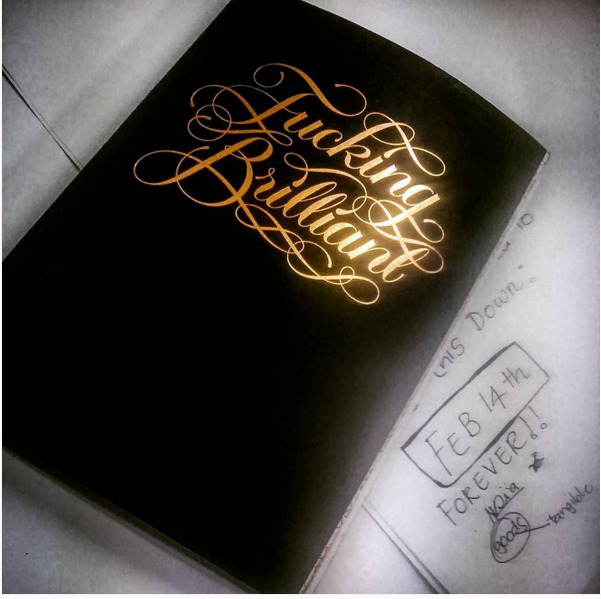 Fucking
Brilliant
Down:
FEB 14th
FOREVER!!
goods
tangible